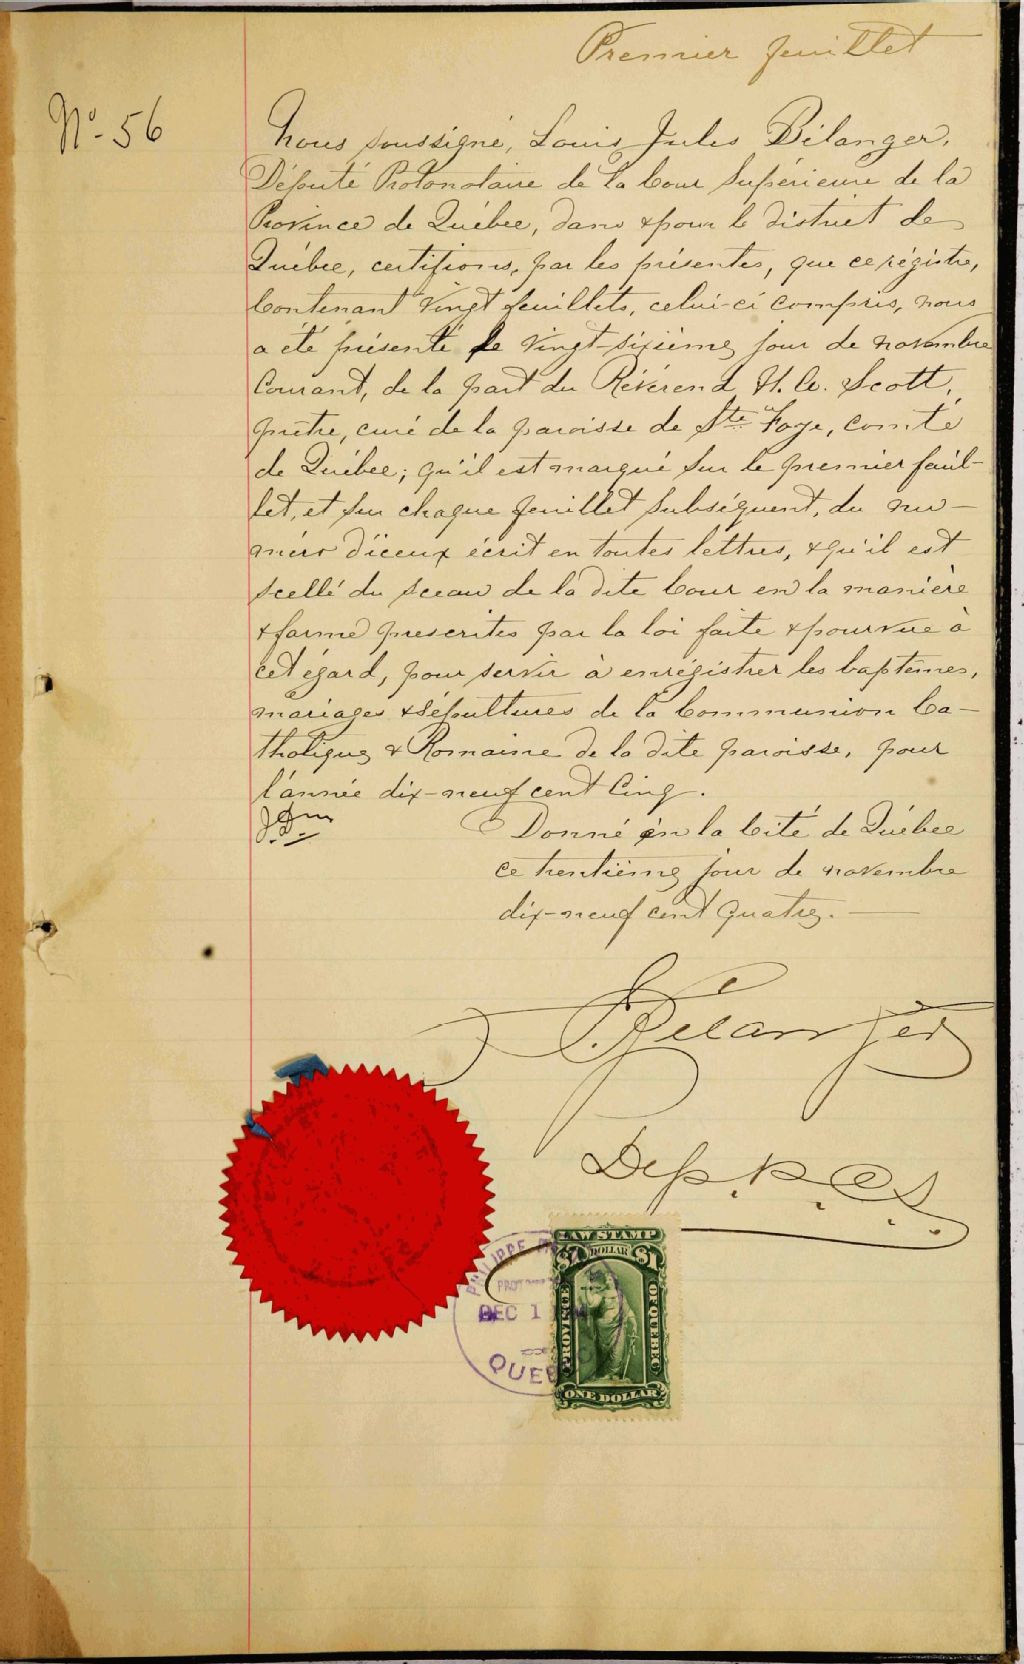 Premier feuillet
No. 56
Nous soussigné, Louis Jules Bélanger,
Député Protonotaire de la Cour Supérieure de la
Province de Québec, dans & pour le district de
Québec, certifions, par les présentes, que ce régistre,
Contenant vingt feuillets, celui-ci compris, nous
a été présenté le vingt-sixième jour de novembre
Courant, de la part du Révérend H. A. Scott,
prêtre, curé de la paroisse de Ste Foye, comté
de Québec; qu'il est marqué sur le premier feuil-
let, et sur chaque feuillet subséquent, du nu-
méro d'iceux écrit en toutes lettres, & qu'il est
scellé du sceau de la dite Cour en la manière
& forme prescrites par la loi faite & pourvue à
cet égard, pour servir à enrégistrer les baptêmes,
mariages & sépultures de la Communion Ca-
tholique & Romaine de la dite paroisse, pour
l'année dix-neuf cent Cinq.
Donné en la Cité de Québec
ce trentième jour de novembre
dix-neuf cent quatre.
Bélanger
Dep. P. C. S.
LAW STAMP
$1 DOLLAR $1
PROVINCE OF QUEBEC
ONE DOLLAR
PHILIPPE
DEC 1
QUEBEC